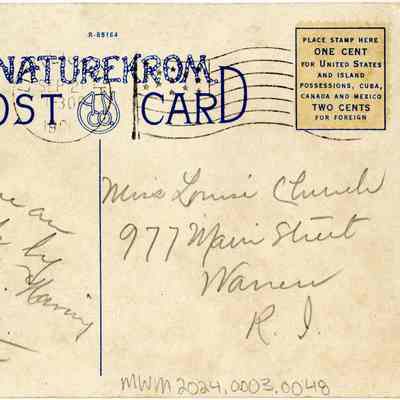 R-85164
NATUREKROM
POST CARD
SEP
30
PLACE STAMP HERE
ONE CENT
FOR UNITED STATES
AND ISLAND
POSSESSIONS, CUBA,
CANADA AND MEXICO
TWO CENTS
FOR FOREIGN
an
by
Having
Miss Louise Church
977 Main Street
Warren
R. I.
MWM 2024.0003.0048